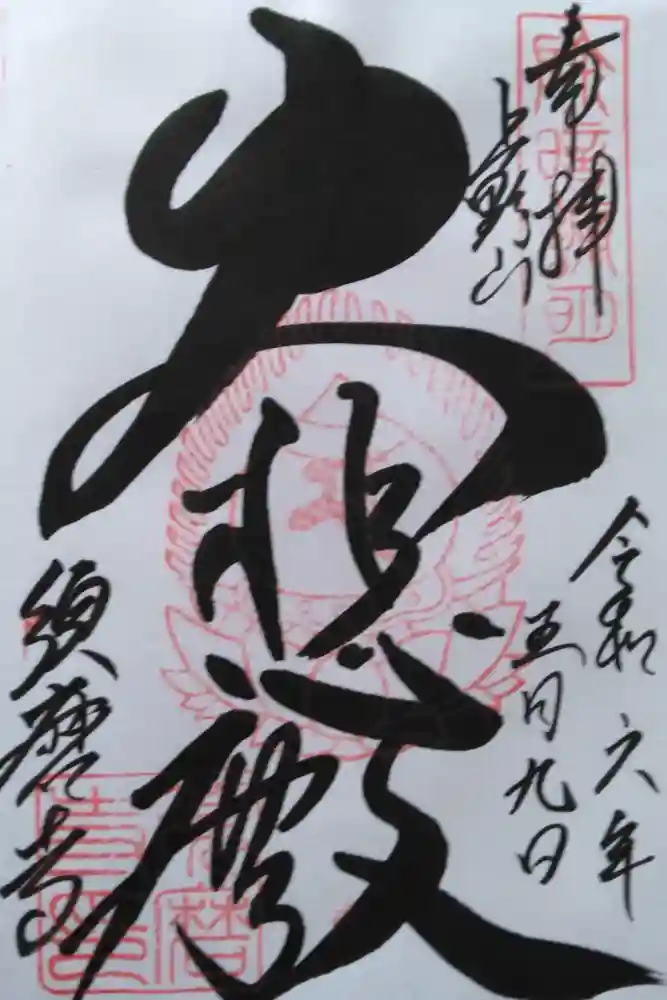 奉拝
上野山
大悲殿
令和六年
五月九日
須磨寺